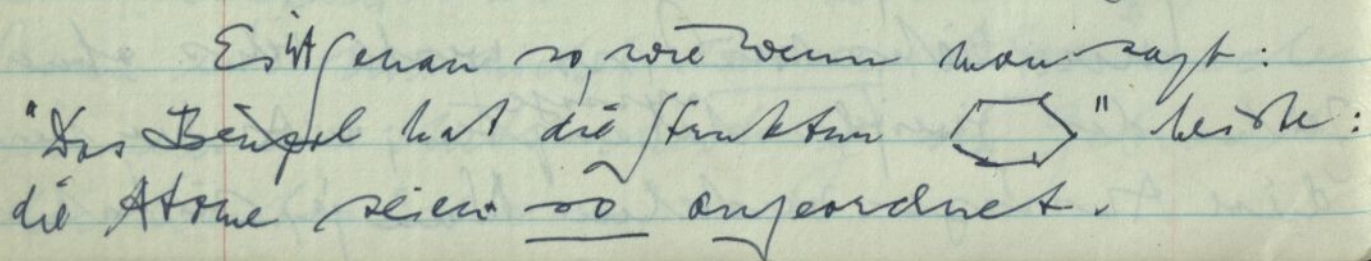 Es ist genau so, wie wenn man sagt:
"Das Benzol hat die Struktur ⬡" heiße:
die Atome seien so angeordnet.